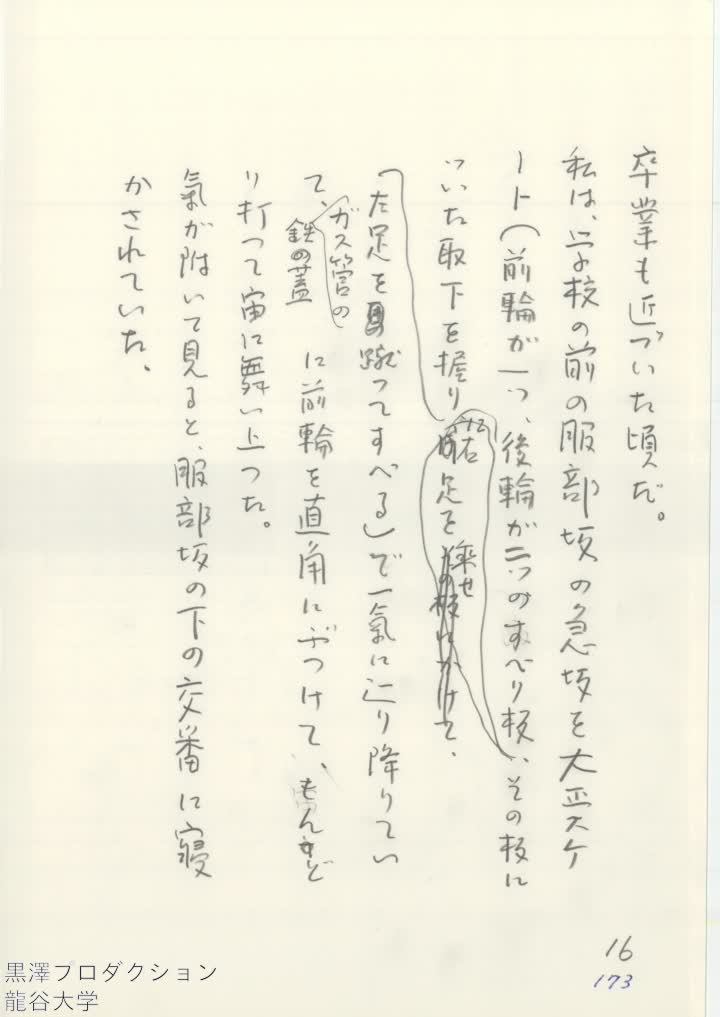 卒業も近づいた頃だ。
私は、学校の前の服部坂の急坂を大正スケ
ート(前輪が一つ、後輪が二つのすべり板、その板に
ついた取下を握り右足を乗せ
左足を蹴ってすべる)で一気に辷り降りてい
て、ガス管の鉄の蓋に前輪を直角にぶつけて、もんど
り打つて宙に舞い上つた。
氣が附いて見ると、服部坂の下の交番に寝
かされていた、
16
173
黒澤プロダクション
龍谷大学